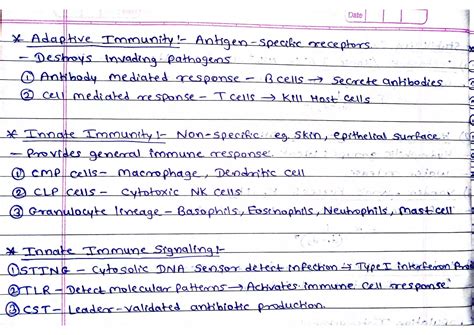 Date
* Adaptive Immunity:- Antigen-specific receptors
- Destroys Invading pathogens
① Antibody mediated response - B cells → Secrete antibodies
② Cell mediated response - T cells → Kill Host cells
* Innate Immunity:- Non-specific eg skin, epithelial surface
- Provides general immune response
① CMP cells - Macrophage, Dendritic cell
② CLP cells - Cytotoxic NK cells
③ Granulocyte lineage - Basophils, Eosinophils, Neutrophils, Mast cell
* Innate Immune Signaling:-
① STING - Cytosolic DNA sensor detect infection → Type I interferon
② TLR - Detect molecular patterns → Activates immune cell response
③ CST - Leader-validated antibiotic production.